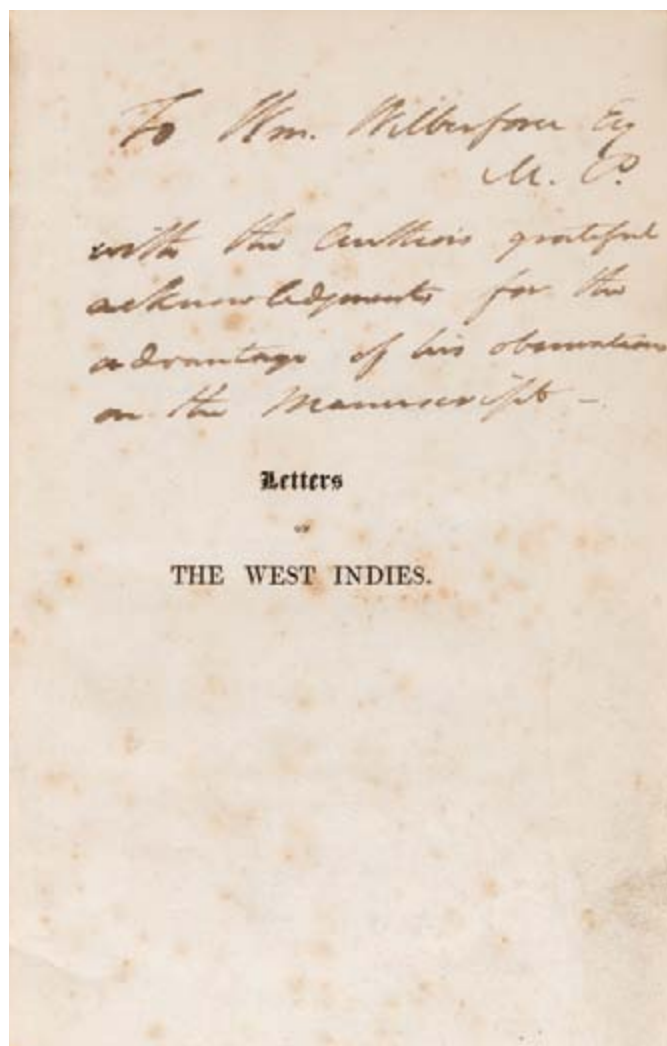 To Wm. Wilberforce Esq
M. P.
with the Authors grateful
acknowledgments for the
advantage of his observations
on the Manuscript –
Letters
ON
THE WEST INDIES.